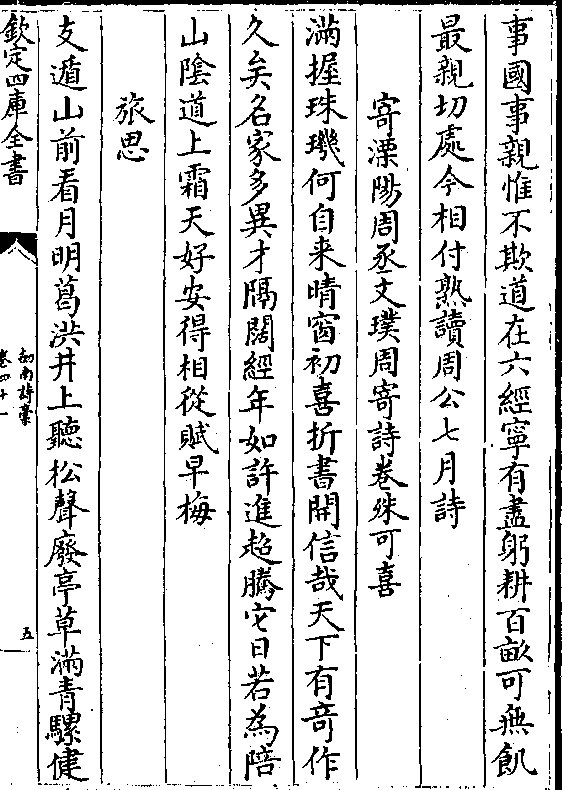 事國事親惟不欺道在六經寧有盡躬耕百畝可無飢
最親切處今相付熟讀周公七月詩
寄溧陽周丞文璞周寄詩卷殊可喜
滿握珠璣何自来晴窗初喜折書開信哉天下有竒作
久矣名家多異才隔闊經年如許進超騰它日若為陪
山陰道上霜天好安得相從賦早梅
旅思
支遁山前看月明葛洪井上聽松聲廢亭草滿青騾健
欽定四庫全書
劍南詩稾
卷四十一
五